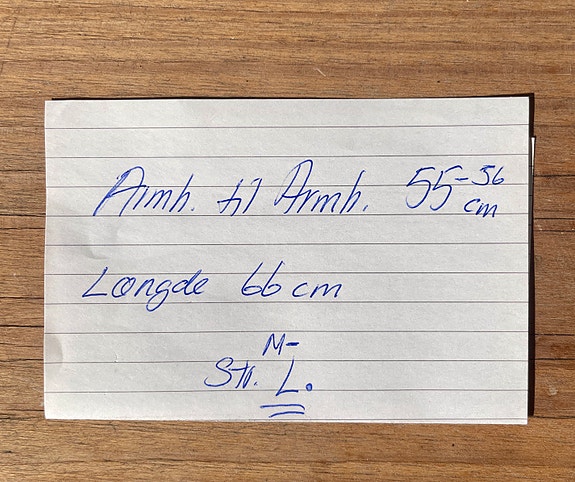 Armh. til Armh. 55-56 cm
Længde 66 cm
M-
Str. L.